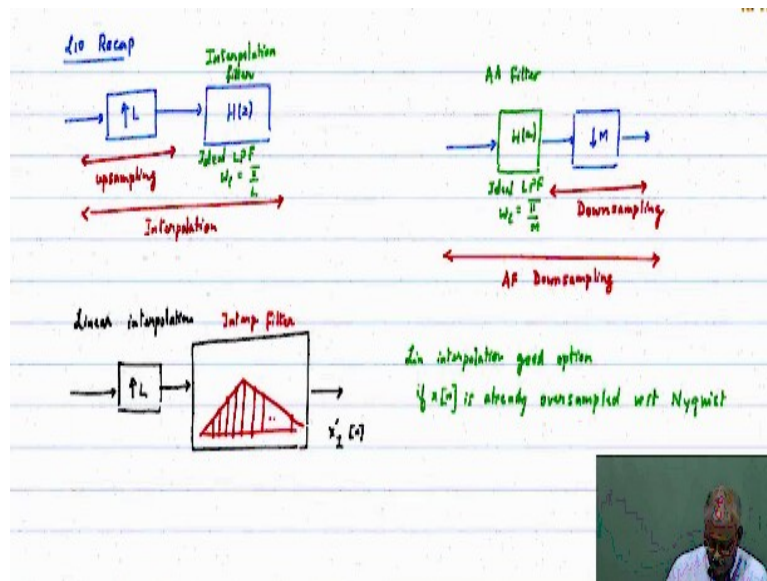 L10 Recap
Interpolation
filter
↑L
H(z)
Ideal LPF
ω_c = π/L
upsampling
Interpolation
AA Filter
H(z)
↓M
Ideal LPF
ω_c = π/M
Downsampling
AF Downsampling
Linear interpolation
Interp Filter
↑L
x'_I [n]
Lin interpolation good option
if x[n] is already oversampled wrt Nyquist